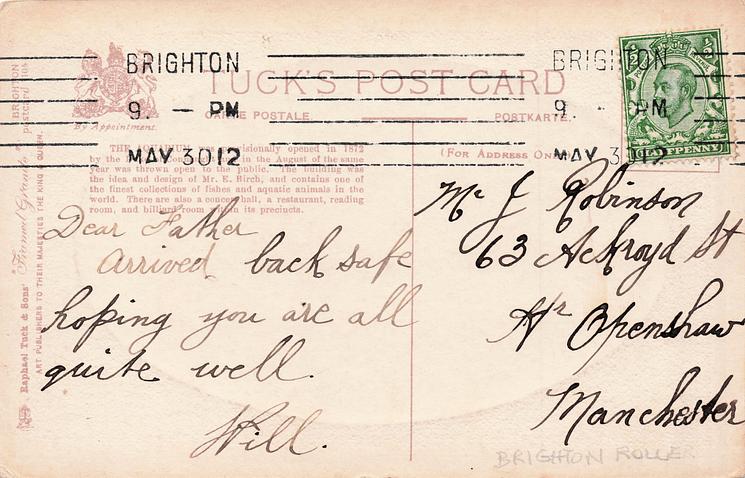 BRIGHTON
9. — PM
MAY 30 12
BRIGHTON
9. - PM
MAY 30 12
HALFPENNY
TUCK'S POST CARD
CARTE POSTALE.
POSTKARTE.
By Appointment.
(For Address On
THE AQUARIUM was provisionally opened in 1872
by the in the August of the same
year was thrown open to the public. The building was
the idea and design of Mr. E. Birch, and contains one of
the finest collections of fishes and aquatic animals in the
world. There are also a concert hall, a restaurant, reading
room, and billiard room within its precincts.
Raphael Tuck & Sons' "Framed Gravure" Postcard BRIGHTON
ART PUBLISHERS TO THEIR MAJESTIES THE KING & QUEEN.
Dear Father
arrived back safe
hoping you are all
quite well.
Will.
Mr J Robinson
63 Ackroyd St
Hr Openshaw
Manchester
BRIGHTON ROLLER